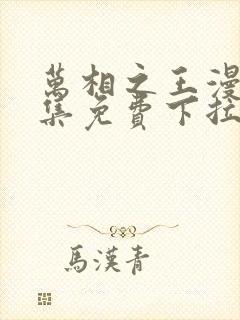 萬相之王漫
集免費下拉
馬漢青